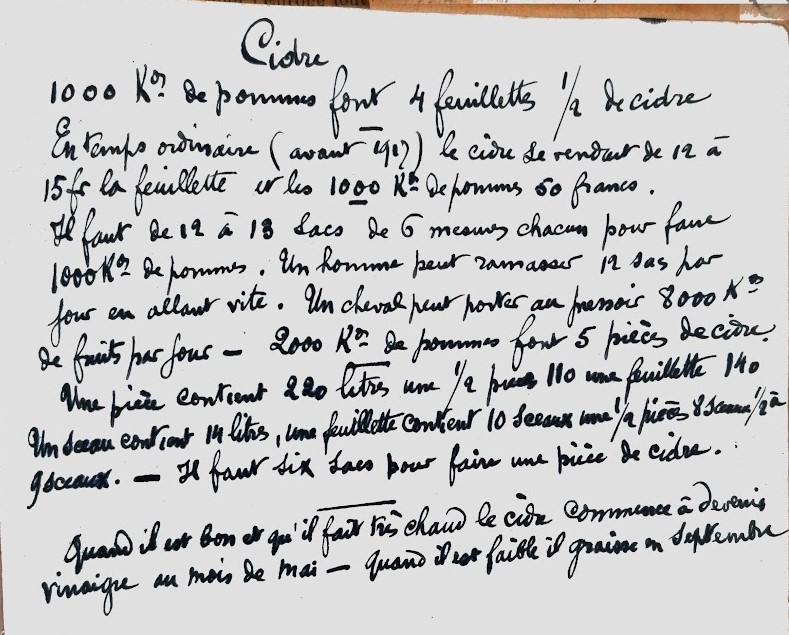 Cidre
1000 Kos de pommes font 4 feuillettes 1/2 de cidre
En temps ordinaire (avant 1917) le cidre se vendait de 12 à
15 fr la feuillette et les 1000 Kos de pommes 50 francs.
Il faut de 12 à 13 sacs de 6 mesures chacun pour faire
1000 Kos de pommes. Un homme peut ramasser 12 sas par
jour en allant vite. Un cheval peut porter au pressoir 8000 Kos
de fruits par jour – 2000 Kos de pommes font 5 pièces de cidre.
Une pièce contient 220 litres une 1/2 pièce 110 une feuillette 140
Un sceau contient 14 litres, une feuillette contient 10 sceaux une 1/2 pièces 8 sceaux 1/2 à
9 sceaux. – Il faut six sacs pour faire une pièce de cidre.
Quand il est bon et qu'il fait très chaud le cidre commence à devenir
vinaigre au mois de mai – quand il est faible il graisse en septembre